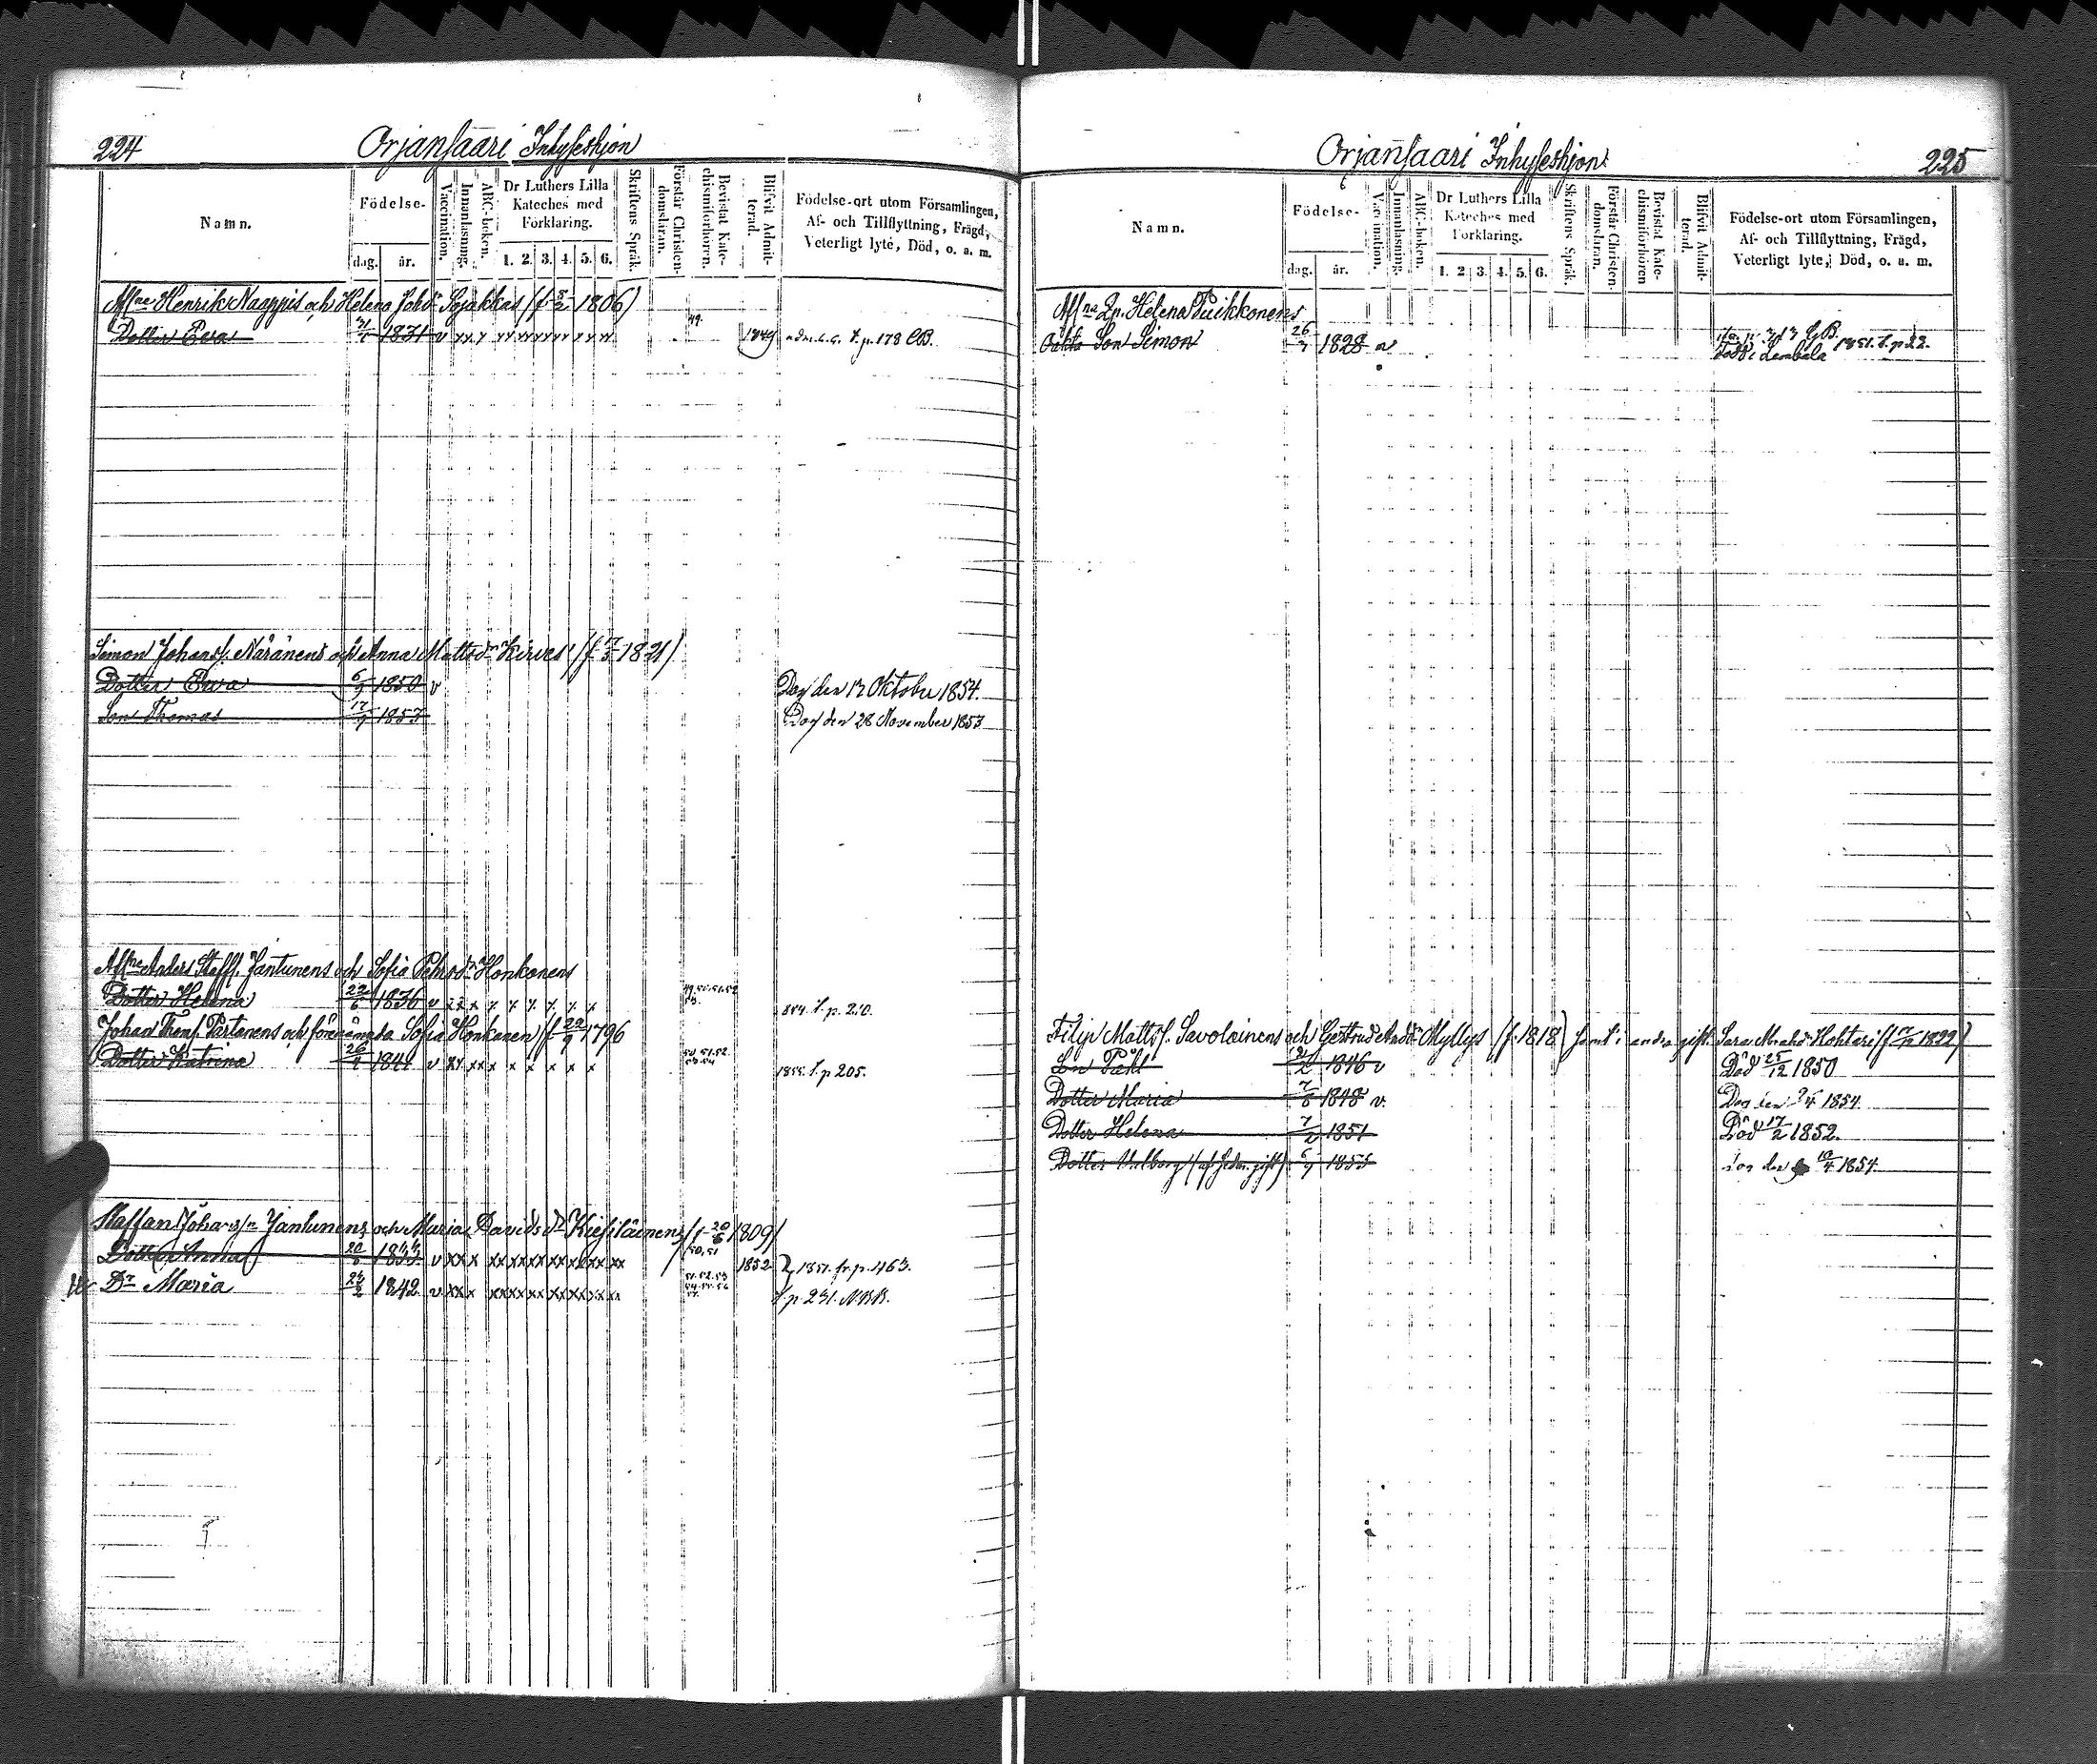 224
Orjansaari Inhyseshjon
Namn.
Födelse-
dag. år.
Vaccination.
Innanläsning.
ABC-boken.
Dr Luthers Lilla
Kateches med
Förklaring.
1. 2. 3. 4. 5. 6.
Skriftens Språk.
Förstår Christen-
domsläran.
Bevistat Kate-
chismiförhören.
Blifvit Admit-
terad.
Födelse-ort utom Församlingen,
Af- och Tillflyttning, Frägd,
Veterligt lyte, Död, o. a. m.
Henrik och Helena Johsdr Sojakkas (f. 1806)
Dotter Ewa 1831 v 49. 1849 p. 178
Simon Johansf. Näränens och Anna Mattsdr Kirves (f. 1821)
Dotter Ewa 6/9 1850 v Dog den 12 Oktober 1854.
Son Thomas 17/9 1853 Dog den 28 November 1853
Anders Staff. Jantunens och Sofia Pehrsdr Honkonens
Dotter Helena 22/6 1836 v x x x x x x x p. 210.
Johan Thomf. Partanens och förenämnda Sofia Honkanen (f. 22/9 1796
Dotter Katrina 26/4 1841 v xx xx x x x x x x 1855. f. p 205.
Staffan Johansfn Jantunens och Maria Davidsdr Kiesiläinens (f. 20/6 1809)
Dotter Anna 20/6 1833 v xx x xx xx xx xx xx xx xx 50,51 1852 1851. fr. p. 463.
Dr Maria 24/2 1842 v xx x xx xx xx xx xx xx f. p. 231. N.B.B.
Orjansaari Inhyseshjon
225
Namn.
Födelse-
dag. år.
Vaccination.
Innanläsning.
ABC-boken.
Dr Luthers Lilla
Kateches med
Förklaring.
1. 2. 3. 4. 5. 6.
Skriftens Språk.
Förstår Christen-
domsläran.
Bevistat Kate-
chismiförhören
Blifvit Admit-
terad.
Födelse-ort utom Församlingen,
Af- och Tillflyttning, Frägd,
Veterligt lyte, Död, o. a. m.
Helena Puikkonens
Oäkta Son Simon 26/7 1828 v 1851. f. p 22.
Filip Mattsf. Savolainens och Gertrud Andsdr Myllys (f. 1818) samt i andra gift. Sara Hohtari (f. 1822)
Son Påhl 1846 v Död 25/12 1850
Dotter Maria 7/8 1848 v. Dog den 1854.
Dotter Helena 7/2 1851 Död 17/2 1852.
Dotter Valborg (af sedn. gift) 6/9 1853 Dog den 10/4 1854